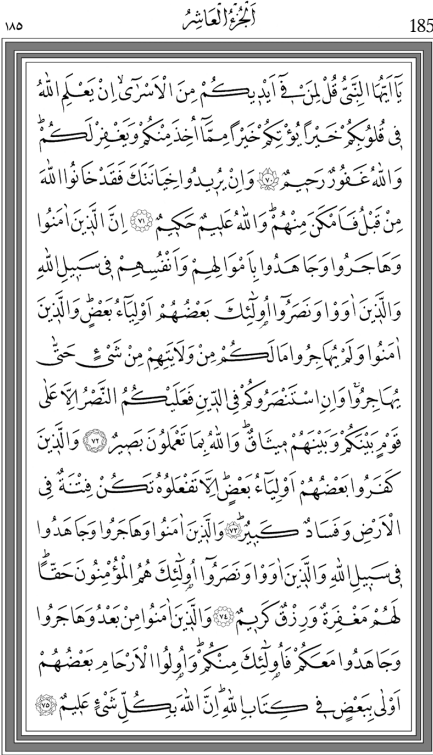 185 اَلْجُزْءُ الْعَاشِرُ ١٨٥
يَٓا اَيُّهَا النَّبِيُّ قُلْ لِمَنْ ف۪ٓي اَيْد۪يكُمْ مِنَ الْاَسْرٰىۙ اِنْ يَعْلَمِ اللّٰهُ
ف۪ي قُلُوبِكُمْ خَيْراً يُؤْتِكُمْ خَيْراً مِمَّٓا اُخِذَ مِنْكُمْ وَيَغْفِرْ لَكُمْۜ
وَاللّٰهُ غَفُورٌ رَح۪يمٌ ﴿٧٠﴾ وَاِنْ يُر۪يدُوا خِيَانَتَكَ فَقَدْ خَانُوا اللّٰهَ
مِنْ قَبْلُ فَاَمْكَنَ مِنْهُمْۜ وَاللّٰهُ عَل۪يمٌ حَك۪يمٌ ﴿٧١﴾ اِنَّ الَّذ۪ينَ اٰمَنُوا
وَهَاجَرُوا وَجَاهَدُوا بِاَمْوَالِهِمْ وَاَنْفُسِهِمْ ف۪ي سَب۪يلِ اللّٰهِ
وَالَّذ۪ينَ اٰوَوْا وَنَصَرُٓوا اُو۬لٰٓئِكَ بَعْضُهُمْ اَوْلِيَٓاءُ بَعْضٍۜ وَالَّذ۪ينَ
اٰمَنُوا وَلَمْ يُهَاجِرُوا مَا لَكُمْ مِنْ وَلَايَتِهِمْ مِنْ شَيْءٍ حَتّٰى
يُهَاجِرُواۚ وَاِنِ اسْتَنْصَرُوكُمْ فِي الدّ۪ينِ فَعَلَيْكُمُ النَّصْرُ اِلَّا عَلٰى
قَوْمٍ بَيْنَكُمْ وَبَيْنَهُمْ م۪يثَاقٌۜ وَاللّٰهُ بِمَا تَعْمَلُونَ بَص۪يرٌ ﴿٧٢﴾ وَالَّذ۪ينَ
كَفَرُوا بَعْضُهُمْ اَوْلِيَٓاءُ بَعْضٍۜ اِلَّا تَفْعَلُوهُ تَكُنْ فِتْنَةٌ فِي
الْاَرْضِ وَفَسَادٌ كَب۪يرٌۜ ﴿٧٣﴾ وَالَّذ۪ينَ اٰمَنُوا وَهَاجَرُوا وَجَاهَدُوا
ف۪ي سَب۪يلِ اللّٰهِ وَالَّذ۪ينَ اٰوَوْا وَنَصَرُٓوا اُو۬لٰٓئِكَ هُمُ الْمُؤْمِنُونَ حَقاًّۜ
لَهُمْ مَغْفِرَةٌ وَرِزْقٌ كَر۪يمٌ ﴿٧٤﴾ وَالَّذ۪ينَ اٰمَنُوا مِنْ بَعْدُ وَهَاجَرُوا
وَجَاهَدُوا مَعَكُمْ فَاُو۬لٰٓئِكَ مِنْكُمْۜ وَاُو۬لُوا الْاَرْحَامِ بَعْضُهُمْ
اَوْلٰى بِبَعْضٍ ف۪ي كِتَابِ اللّٰهِۜ اِنَّ اللّٰهَ بِكُلِّ شَيْءٍ عَل۪يمٌ ﴿٧٥﴾